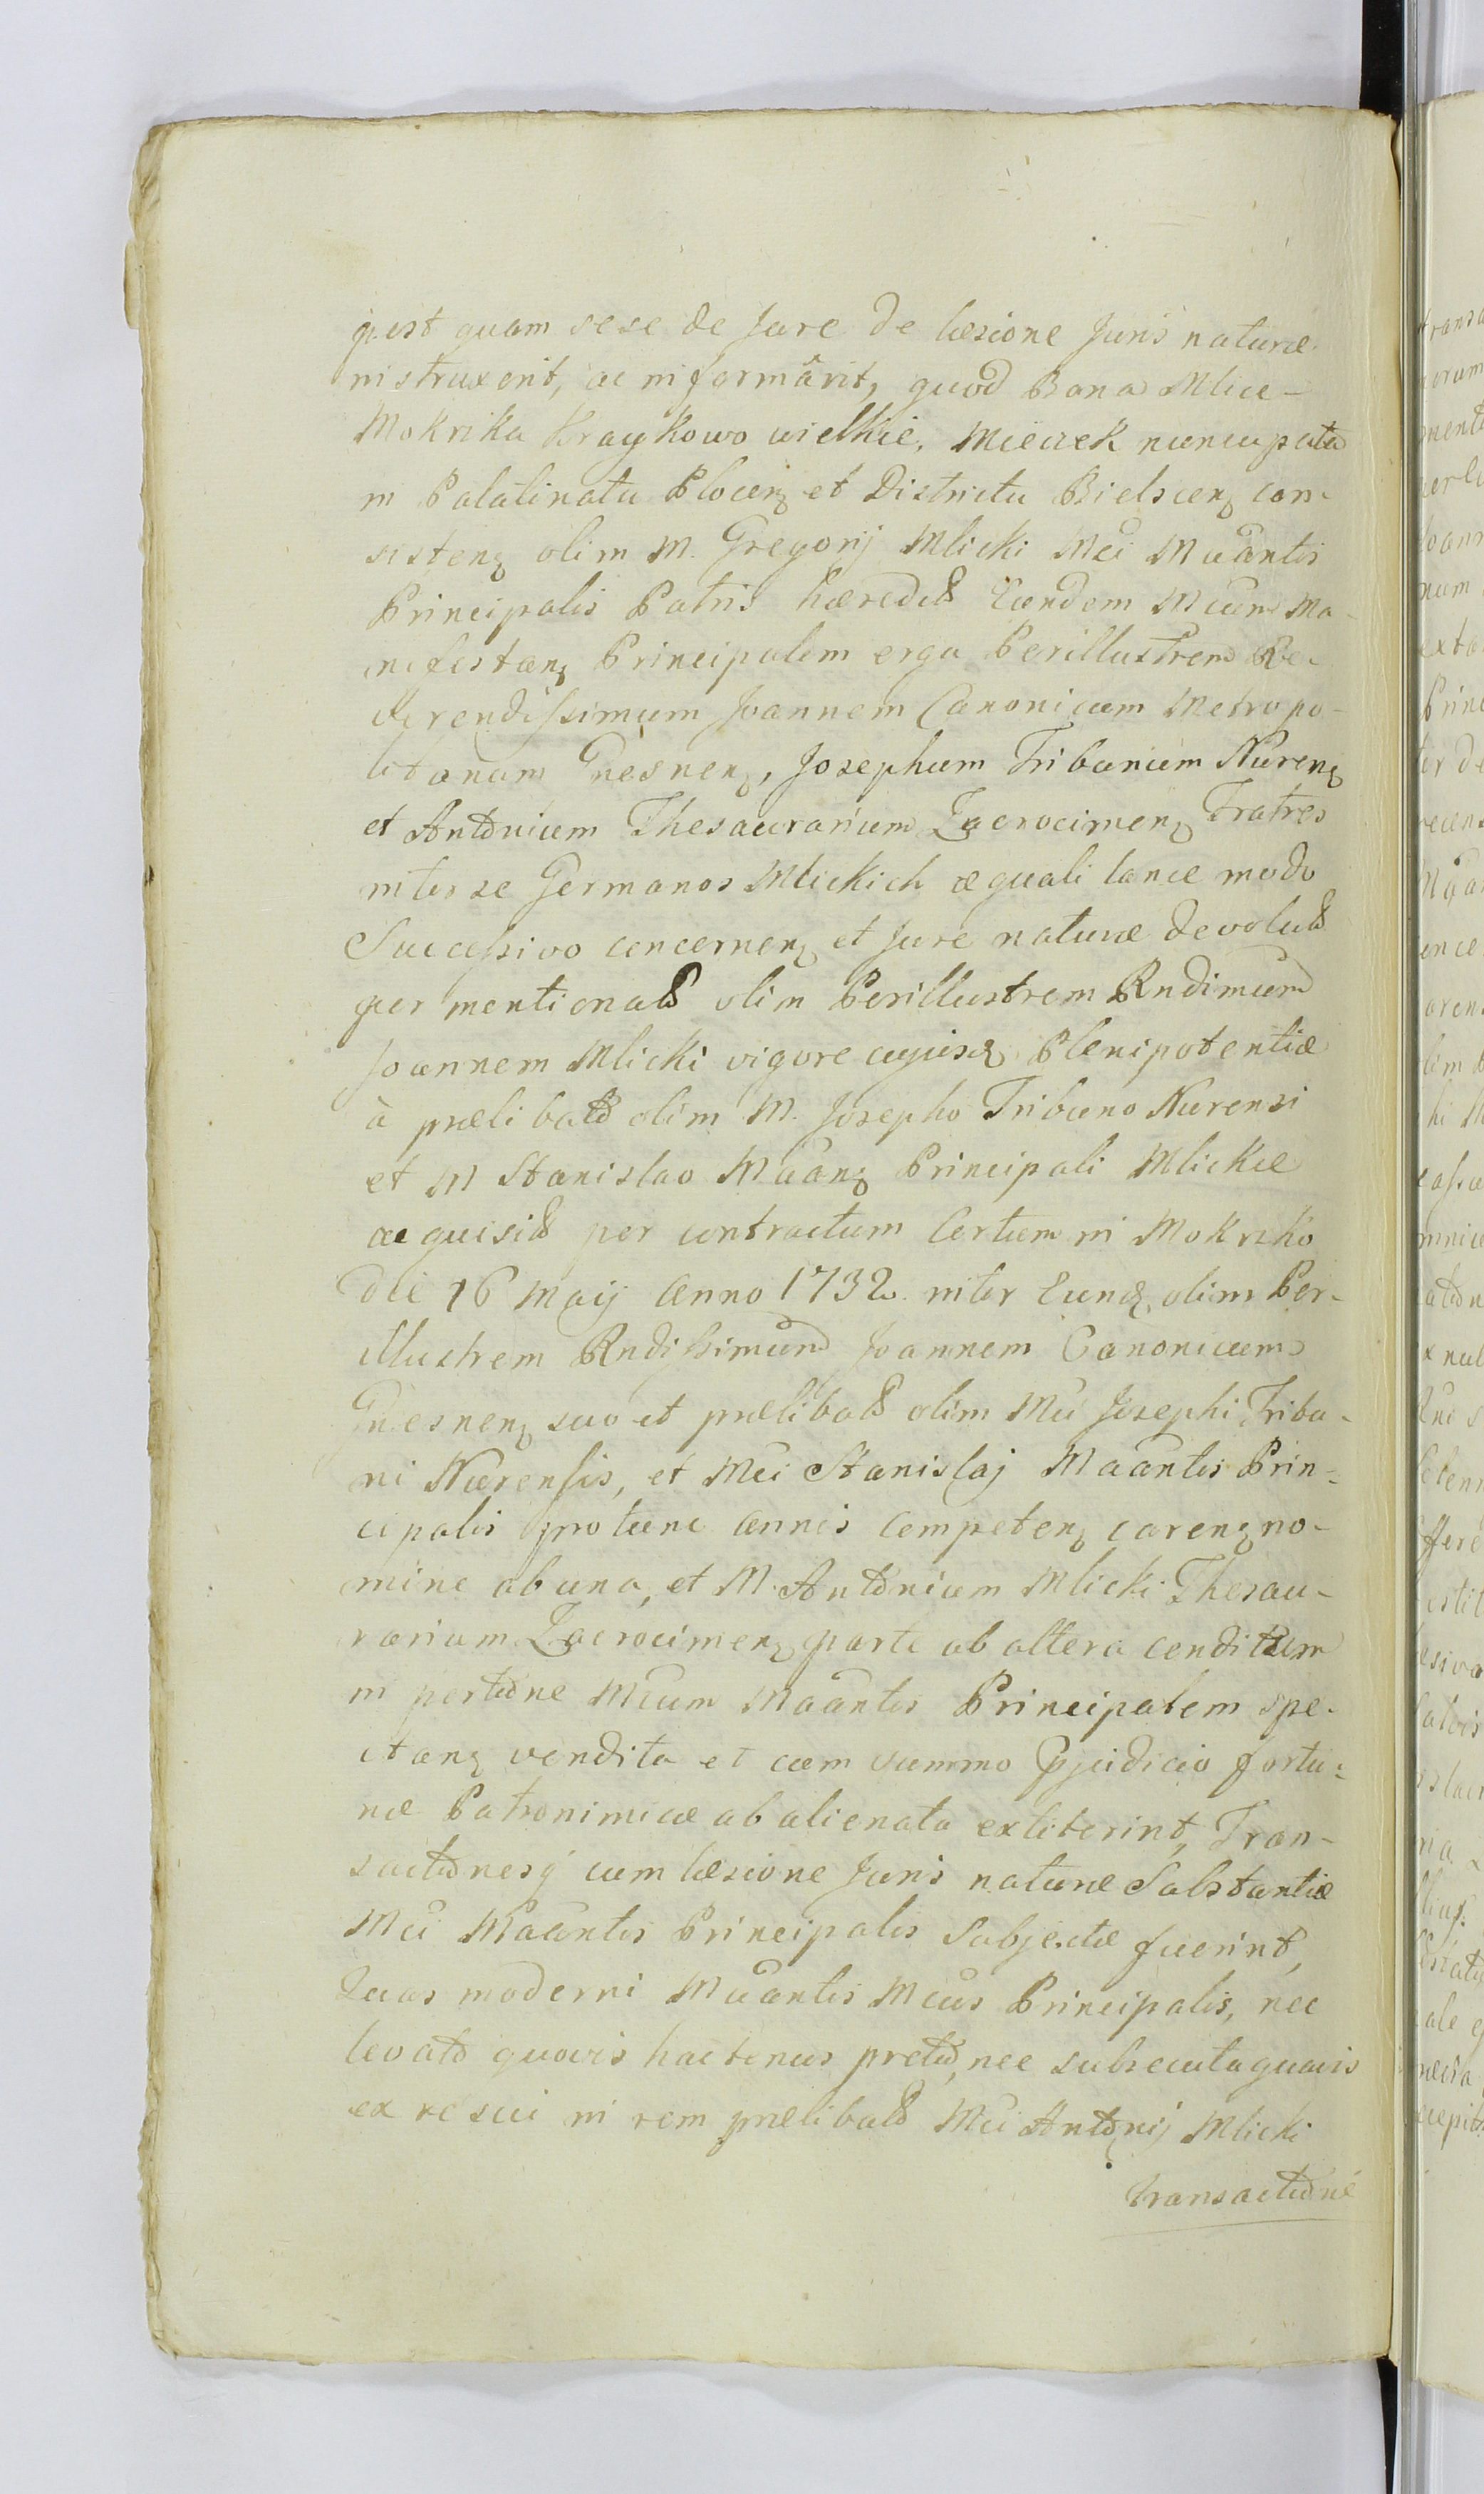 post quam sese de Jure de læsione Juris naturæ
instruxerit, ac informârit, quod Bona Mlice-
Mokrzka Kraykowo wielkie, Mieczek nuncupata
in Palatinatu Plocenȝ et Districtu Bielscenȝ con-
sistenȝ olim M. Gregorij Mlicki Mci Maantis
Principalis Patris hæredit Eundem Mcum Ma-
nifestanȝ Principalem erga Perillustrem Re-
verendissimum Joannem Canonicum Metropo-
litanum Gnesnenȝ, Josephum Tribunum Nurenȝ
et Antonium Thesaurarium Zacrocimenȝ Fratres
inter se Germanos Mlickich æquali lance modo
Successivo concernenȝ et Jure naturæ devolut
per mentionat olim Perillustrem Rndimum
Joannem Mlicki vigore cujusd Plenipotentiæ
à prælibato olim M. Josepho Tribuno Nurensi
et M Stanislao Maanȝ Principali Mlickie
acquisit per contractum Certum in Mokrzko
die 16 Maij Anno 1732 inter Eund, olim Per-
illustrem Rndissimum Joannem Canonicum
Gnesnenȝ suo et prælibat olim Mci Josephi Tribu-
ni Nurensis, et Mci Stanislaj Maantis Prin-
cipalis protunc annis competenȝ carenȝ no-
mine ab una, et M. Antonium Mlicki Thesau-
rarium Zacrocimenȝ parte ab altera conditum
in portione Mcum Maantis Principalem spe-
ctanȝ vendita et cum summo Pjudicio fortu-
næ Patronimicæ abalienata extiterint, Tran-
sactionesq cum læsione Juris naturæ Substantiæ
Mci Maantis Principalis Subjectæ fuerint,
Quas moderni Maantis Mcus Principalis, nec
levato quovis hactenus pretio, nec subsecuta quavis
ex re sui in rem prælibat Mci Antonij Mlicki
transactione